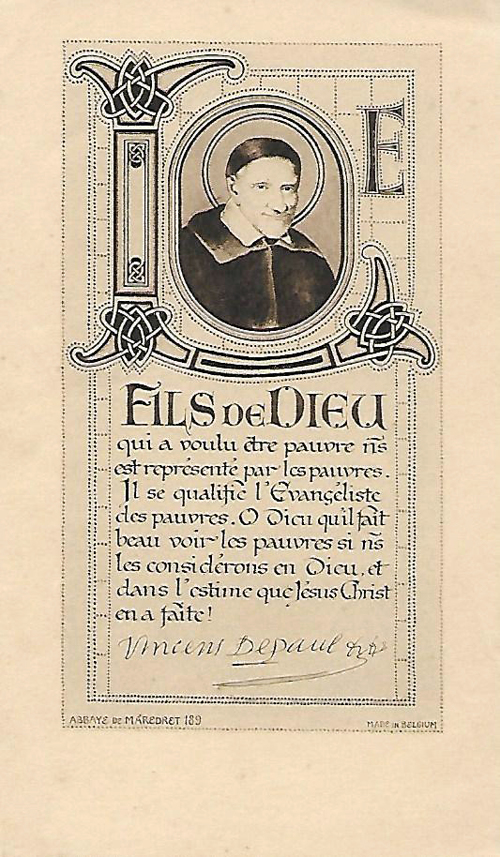 LE
FILS DE DIEU
qui a voulu être pauvre ns̃
est représenté par les pauvres.
Il se qualifie l'Évangéliste
des pauvres. O Dieu qu'il fait
beau voir les pauvres si ns̃
les considérons en Dieu, et
dans l'estime que Jésus Christ
en a faite!
Vincens Depaul
ABBAYE DE MAREDRET 189
MADE IN BELGIUM